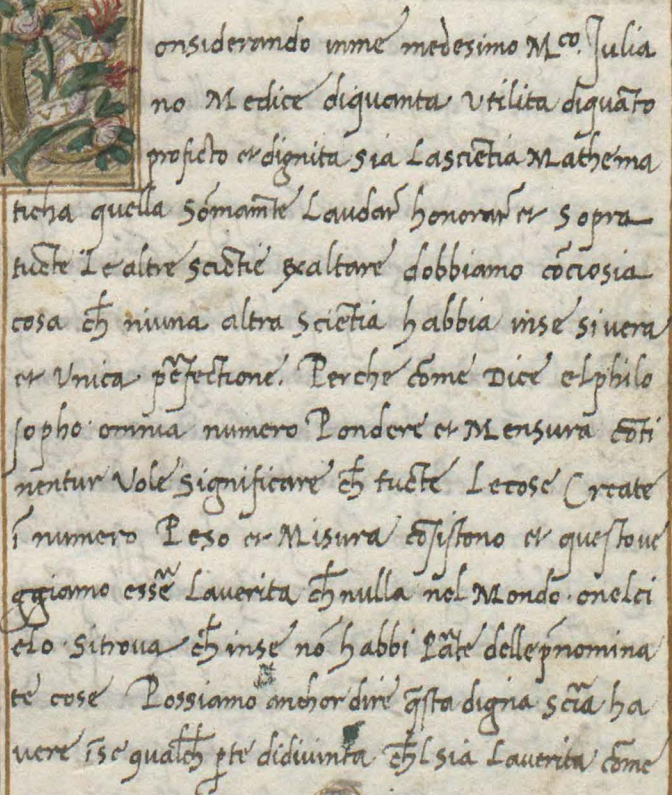 Considerando inme medesimo Mco. Julia
no Medice diquanta Utilita diquāto
proficto et dignita sia Lasciētia Mathema
ticha quella Sōmamēte Laudar̄ honorar̄ et Sopra
tucte Le altre sciētie exaltare dobbiamo cōciosia
cosa ch̄ niuna altra Sciētia habbia inse si vera
et Unica perfectione. Perche cōme Dice el philo
sopho omnia numero Pondere et Mensura cōti
nentur Vole Significare ch̄ tucte Le cose Create
ī numero Peso et Misura cōsistono et questo ve
ggiamo esser̄ Laverita ch̄ nulla nel Mondo o nel ci
elo Sitrova ch̄ inse nō habbi Pāte delle p̄nomina
te cose Possiamo anchor dire q̄sta digna sciā ha
vere ī se qualch̄ p̱te di divinta ch̄l sia Laverita cōme